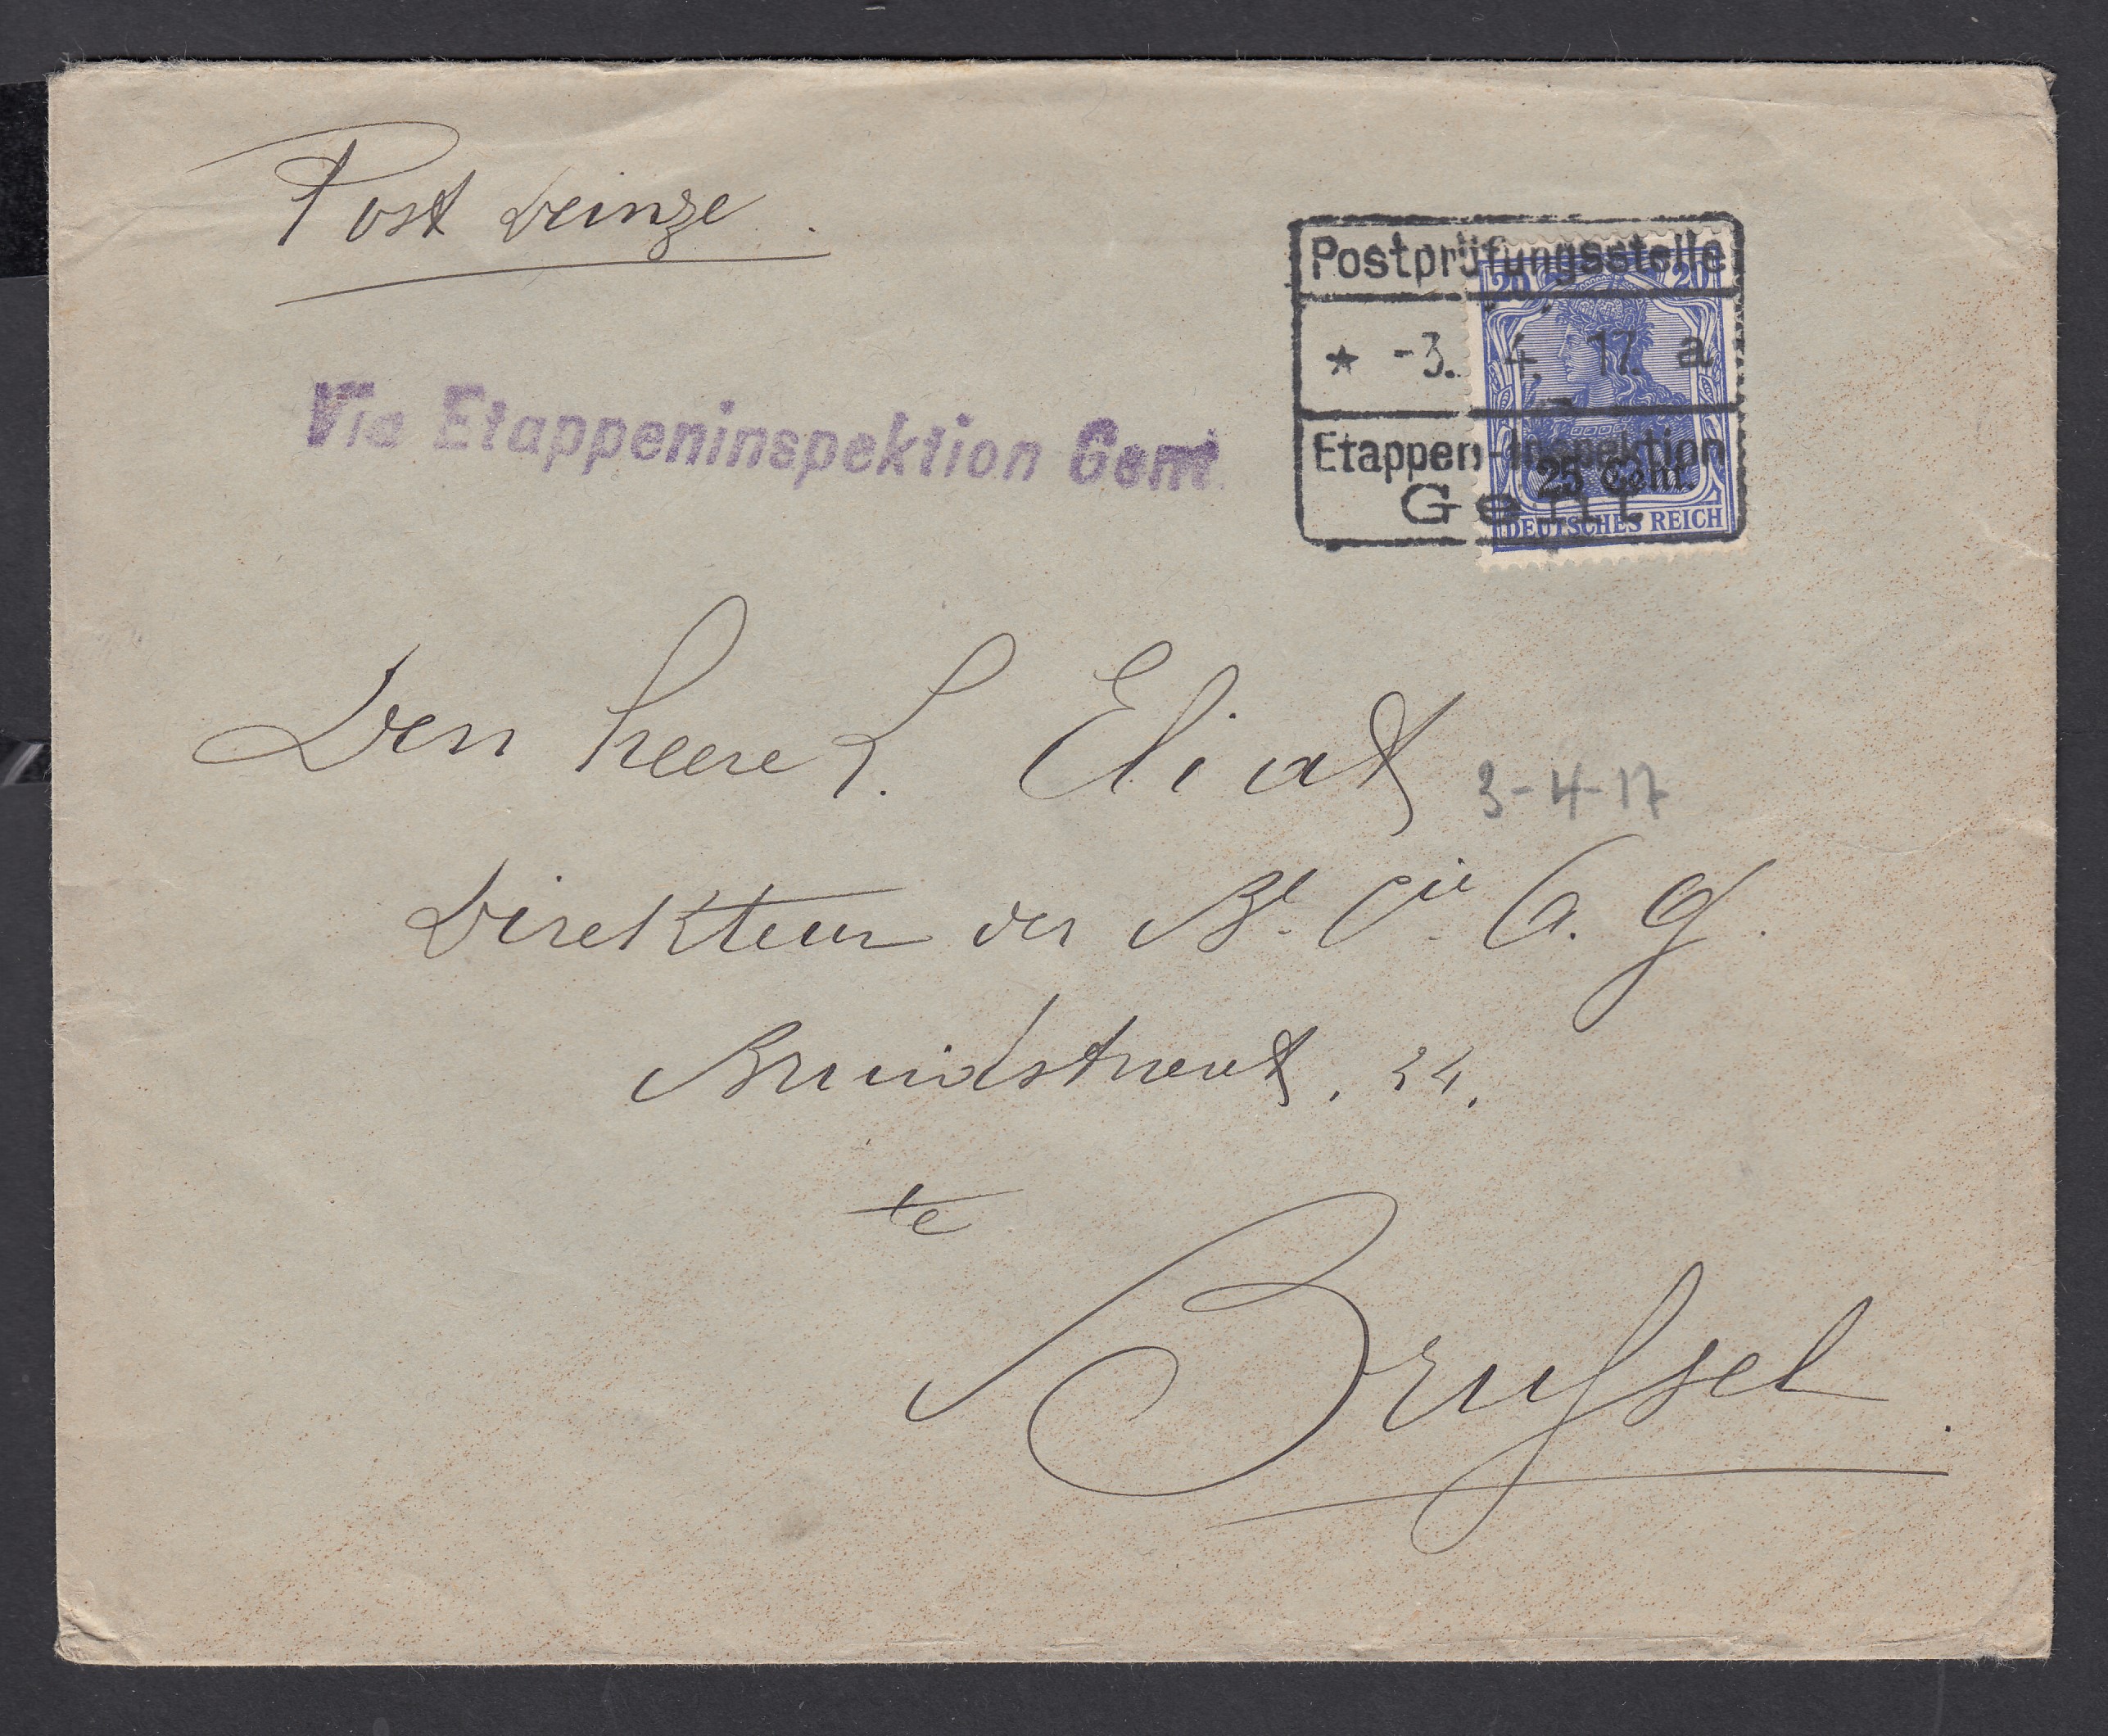 Post Deinze.
Via Etappeninspektion Gent
Postprüfungsstelle
* -3. 4. 17. a
Etappen-Inspektion
Gent
20 20
25 Cent.
DEUTSCHES REICH
Den heere L. Eliat
3-4-17
Direkteur der Bl. Cie G. G.
Bruidstraat. 24.
te
Bryssel.